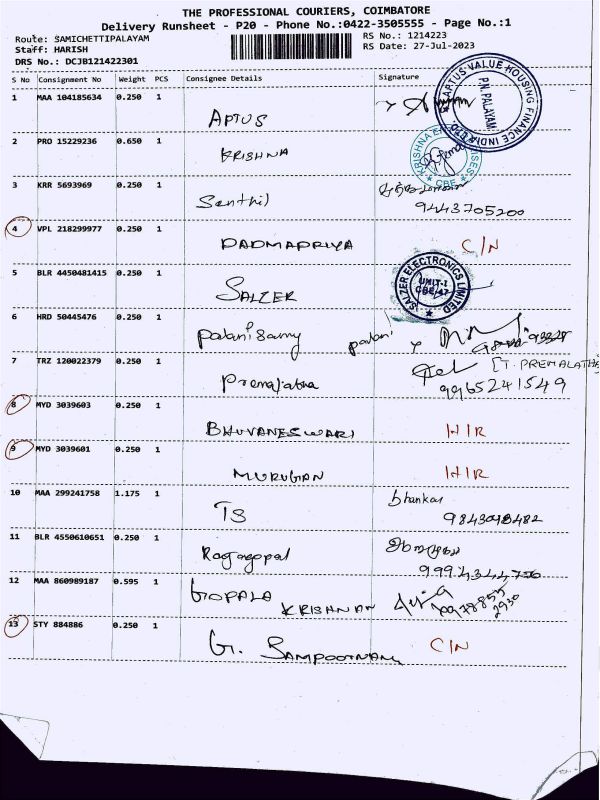 THE PROFESSIONAL COURIERS, COIMBATORE
Delivery Runsheet - P20 - Phone No.:0422-3505555 - Page No.:1
Route: SAMICHETTIPALAYAM RS No.: 1214223
Staff: HARISH RS Date: 27-Jul-2023
DRS No.: DCJB121422301
S No Consignment No Weight PCS Consignee Details Signature
1 MAA 104185634 0.250 1 APTUS
APTUS VALUE HOUSING FINANCE INDIA LTD
P.N. PALAYAM
2 PRO 15229236 0.650 1 KRISHNA
CBE
3 KRR 5693969 0.250 1 Senthil
9443705200
4 VPL 218299977 0.250 1 PADMAPRIYA C/N
5 BLR 4450481415 0.250 1 SALZER
SALZER ELECTRONICS LIMITED
UNIT-I
CBE-47
6 HRD 50445476 0.250 1 Palanisamy palani
7 TRZ 120022379 0.250 1 Premalatha [T. PREMALATHA
9965241549
8 MYD 3039603 0.250 1 BHUVANESWARI HIR
9 MYD 3039601 0.250 1 MURUGAN HIR
10 MAA 299241758 1.175 1 TS bhankar
11 BLR 4550610651 0.250 1 Ragagopal
12 MAA 860989187 0.595 1 GOPALA KRISHNAN
13 STY 884886 0.250 1 G. SAMPOORNAM C/N